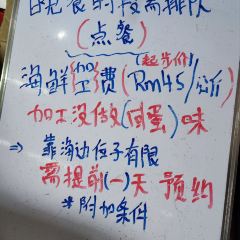 晚餐时段需排队
(点餐)
起步价
海鲜加工费(Rm45/公斤)
加工没做(咸蛋)味
⇒ 靠海边位子有限
需提前(一)天 预约
*附加条件